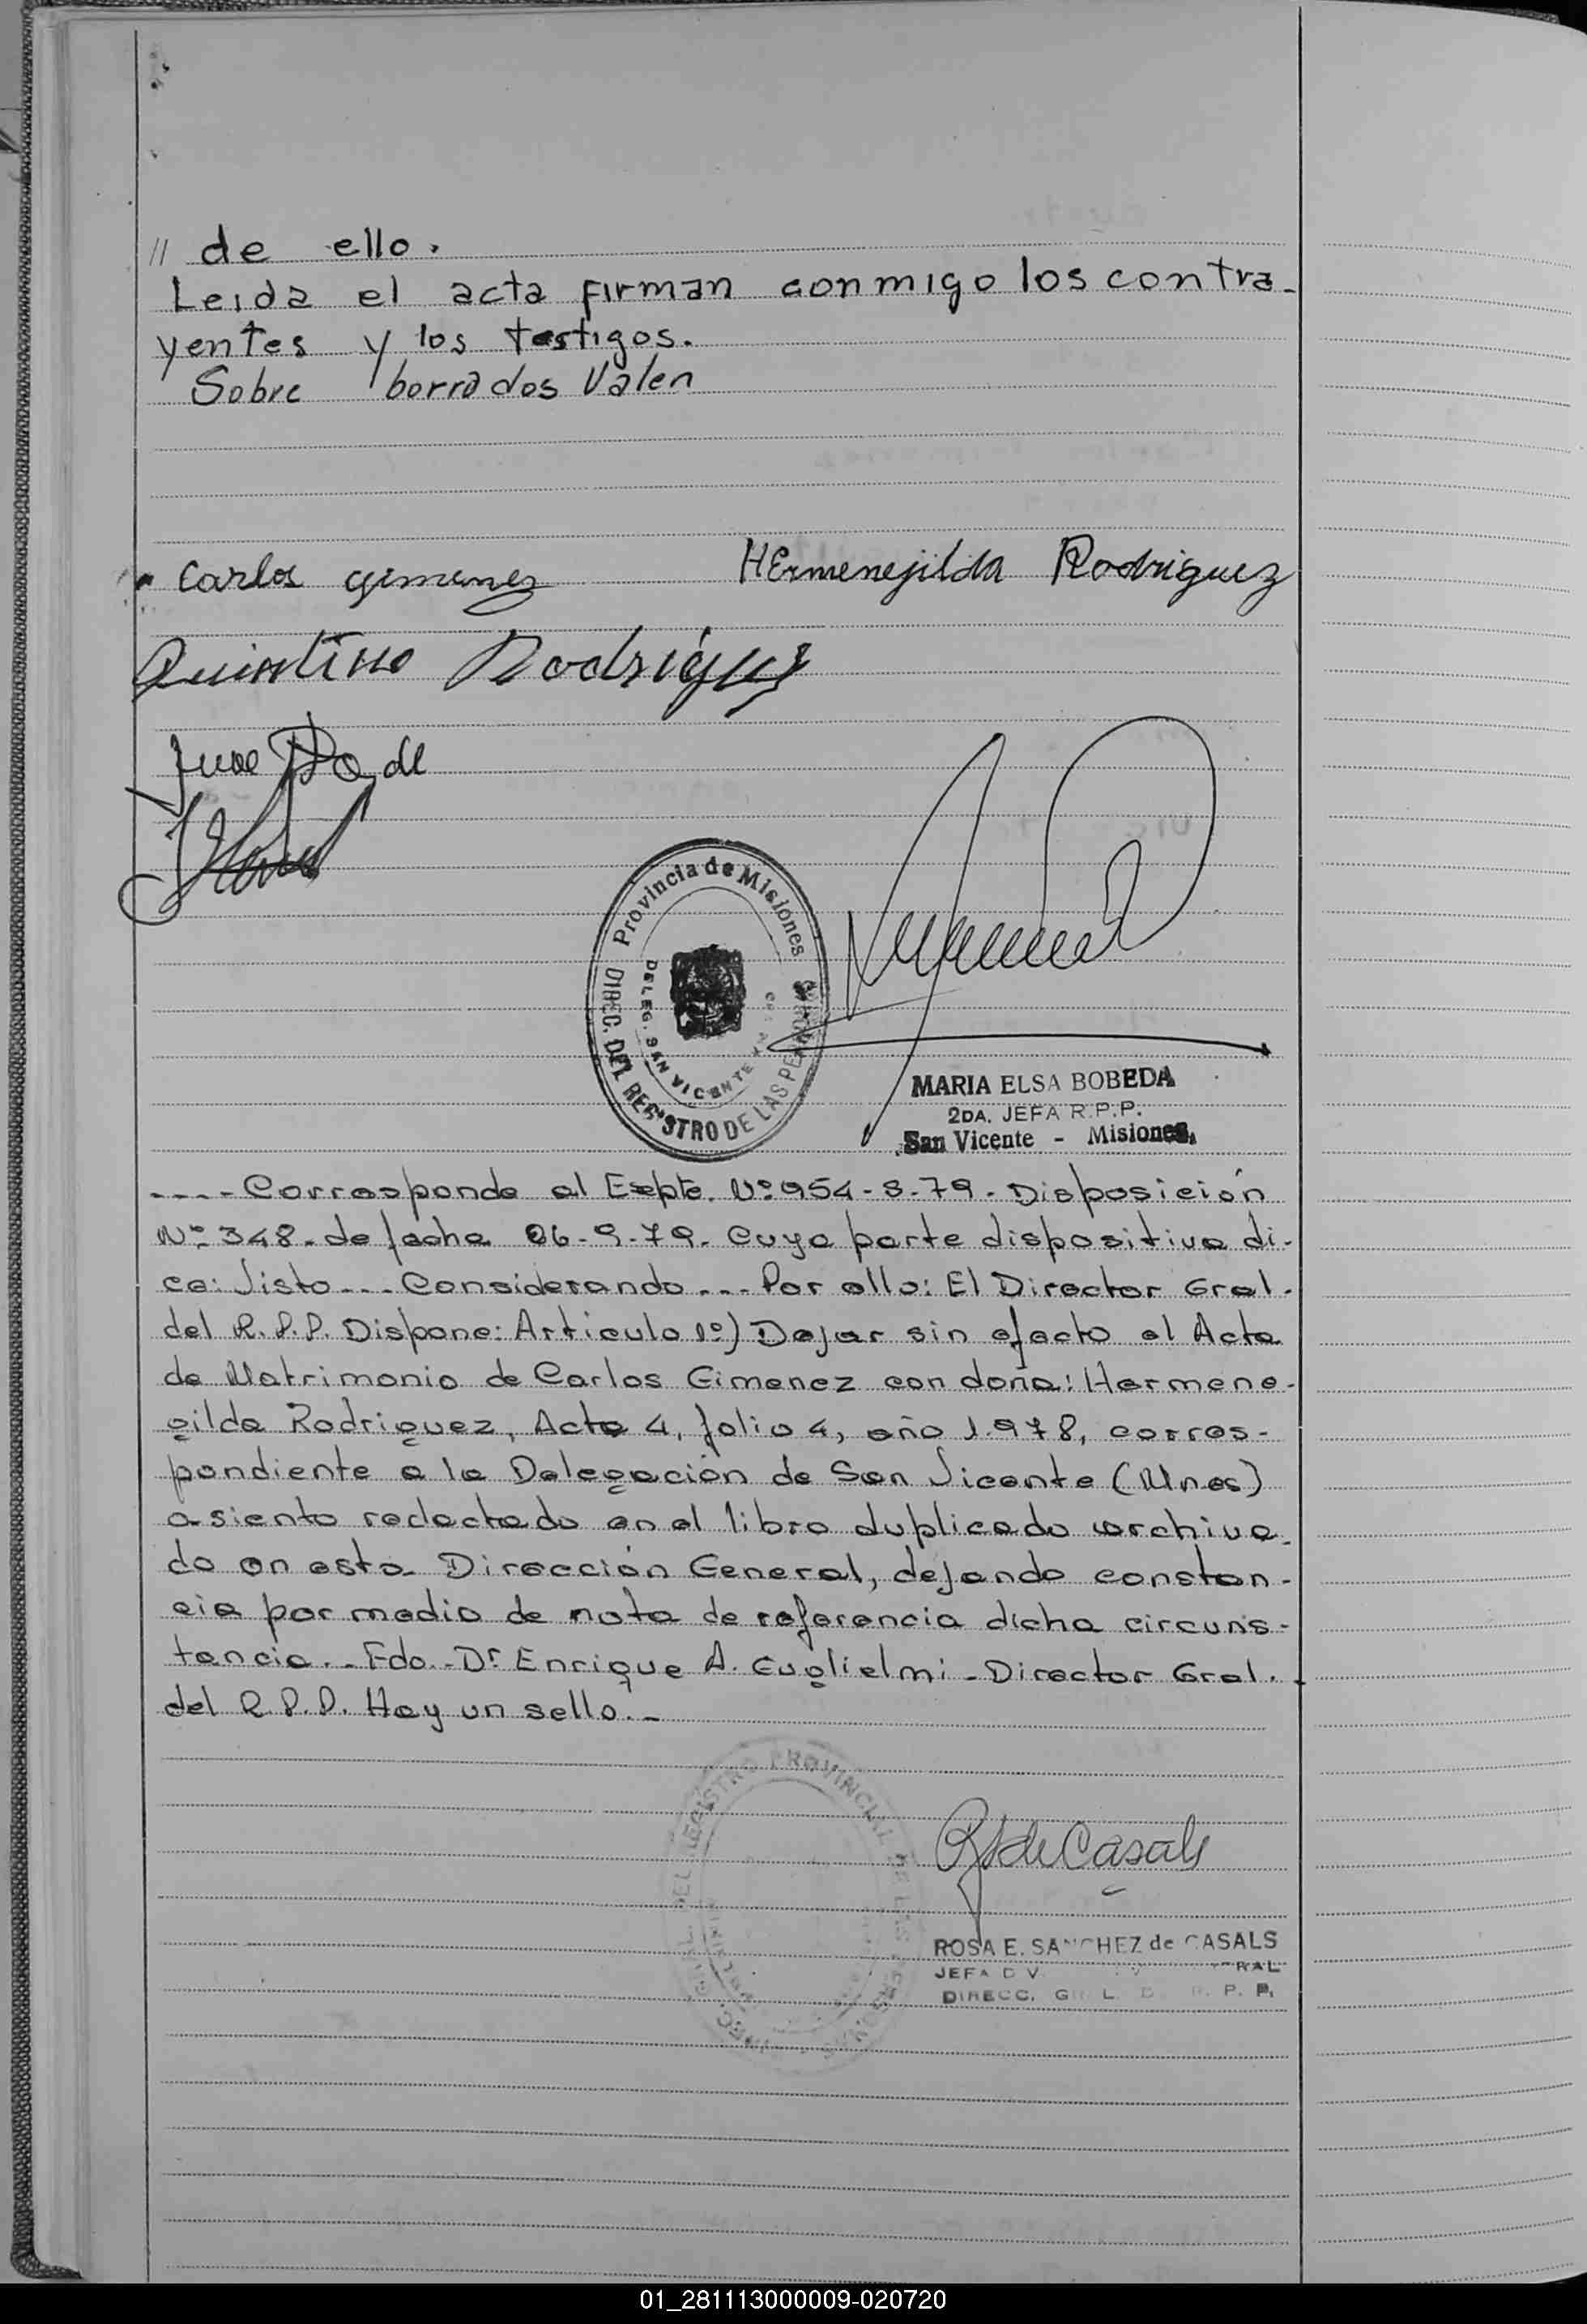 // de ello.
Leida el acta firman conmigo los contra-
yentes y los testigos.
Sobre borrados Valen
Carlos gimenez Hermenejilda Rodriguez
Quintino Rodriguez
Provincia de Misiones
DIREC. DEL REGISTRO DE LAS PERSONAS
DELEG. SAN VICENTE
MARIA ELSA BOBEDA
2DA. JEFA R.P.P.
San Vicente - Misiones
---- Corresponde al Expte. Nº 954-S-79. Disposición
Nº 348. de fecha 06-9-79. Cuya parte dispositiva di-
ce: Visto --- Considerando --- Por ello: El Director Gral.
del R.P.P. Dispone: Articulo 1º) Dejar sin efecto el Acta
de Matrimonio de Carlos Gimenez con doña: Hermene-
gilda Rodriguez, Acta 4, folio 4, año 1.978, corres-
pondiente a la Delegación de San Vicente (Mnes)
asiento redactado en el libro duplicado archiva-
do en esta Dirección General, dejando constan-
cia por medio de nota de referencia dicha circuns-
tancia.- Fdo.- Dr Enrique A. Guglielmi - Director Gral.
del R.P.P. Hay un sello.-
DEL REGISTRO PROVINCIAL DE LAS PERSONAS
R S de Casals
ROSA E. SANCHEZ de CASALS
JEFA DIV.
DIRECC. GRAL. D. R. P. P.
01_281113000009-020720